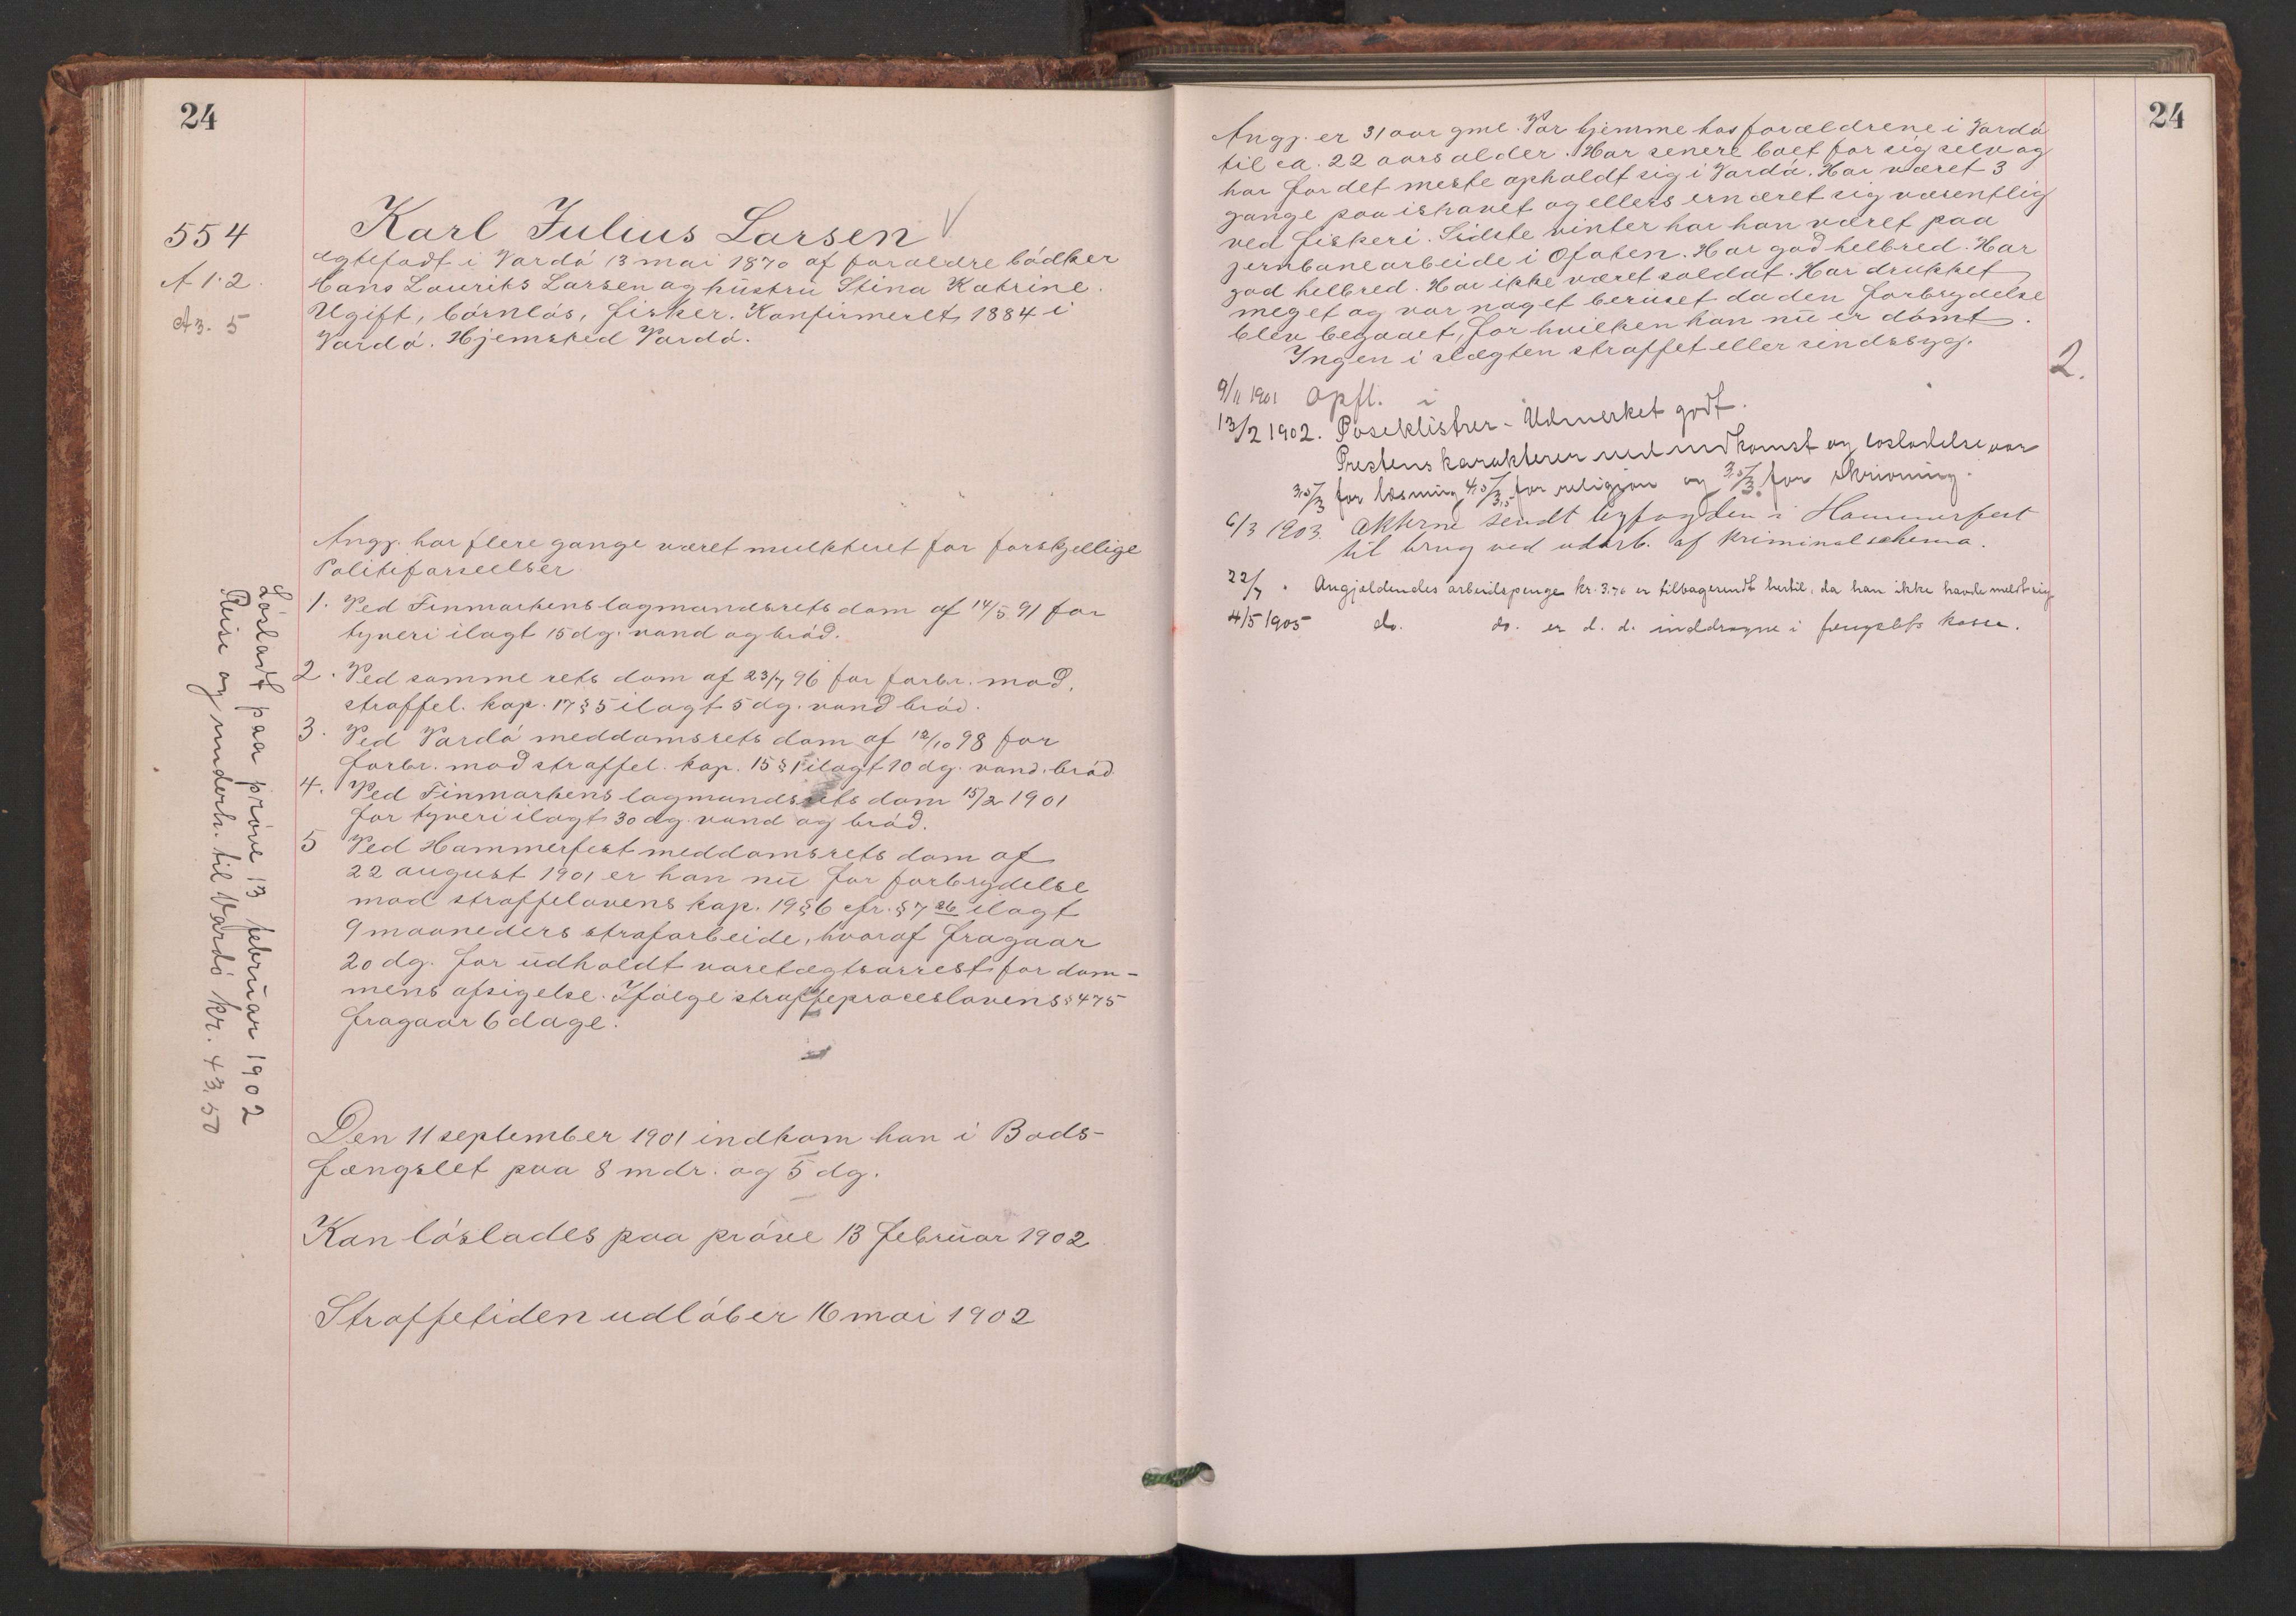 24
554
A 1.2.
A3. 5
Karl Julius Larsen V
Ægtefødt i Vardö 13 mai 1870 af foraeldre bødker
Hans Laurits Larsen og hustru Stina Katrine.
Ugift, børnløs, fisker. Konfirmeret 1884 i
Vardö. Hjemsted Vardö.
Angj. har flere gange været mulkteret for forskjellige
Politiforseelser
1. Ved Finmarkens lagmandsrets dom af 14/5 91 for
tyveri ilagt 15 dg. vand og brød.
2. Ved samme rets dom af 23/7 96 for forbr. mod.
straffel. kap. 17 § 5 ilagt 5 dg. vand brød.
3. Ved Vardö meddomsrets dom af 12/10 98 for
forbr. mod straffel. kap. 15 § 1 ilagt 10 dg. vand. brød
4. Ved Finmarkens lagmandsrets dom 15/2 1901
for tyveri ilagt 30 dg. vand og brød.
5 Ved Hammerfest meddomsrets dom af
22 august 1901 er han nu for forbrydelse
mod straffelovens kap. 19 § 6 cfr. § 7 ilagt
9 maaneders strafarbeide, hvoraf fragaar
20 dg. for udholdt varetægtsarrest for dom-
mens afsigelse. Ifølge straffeproceslovens § 475
fragaar 6 dage.
Den 11 september 1901 indkom han i Bods-
fængslet paa 8 mdr. og 5 dg.
Kan løslades paa prøve 13 februar 1902
Straffetiden udløber 16 mai 1902
Løsladt paa prøve 13 februar 1902
Reise og underh. til Vardö kr. 43.50
24
Angj. er 31 aar gml. Var hjemme hos forældrene i Vardö
til ca. 22 aars alder. Har senere boet for sig selv og
har for det meste opholdt sig i Vardö. Har været 3
gange paa ishavet og ellers ernæret sig væsentlig
ved fiskeri. Sidste vinter har han været paa
jernbanearbeide i Ofoten. Har god helbred. Har
god helbred. Har ikke været soldat. Har drukket
meget og var noget beruset da den forbrydelse
blev begaaet, for hvilken han nu er dømt.
Ingen i slægten straffet eller sindssyg.
2.
9/11 1901 Opfl. i
13/2 1902. Poseklistrer - Udmerket godt.
Prestens karakterer ved indkomst og løsladelse var
3,5/3 for læsning, 4,5/3,5 for religion og 3,5/3 for skrivning.
6/3 1903. Akterne sendt byfogden i Hammerfest
til brug ved udarb. af kriminalschema.
22/7 " Angjældendes arbeidspenge kr. 3.76 er tilbagesendt hertil, da han ikke havde meldt sig
4/5 1905 do. do. er d. d. inddragne i fængslets kasse.